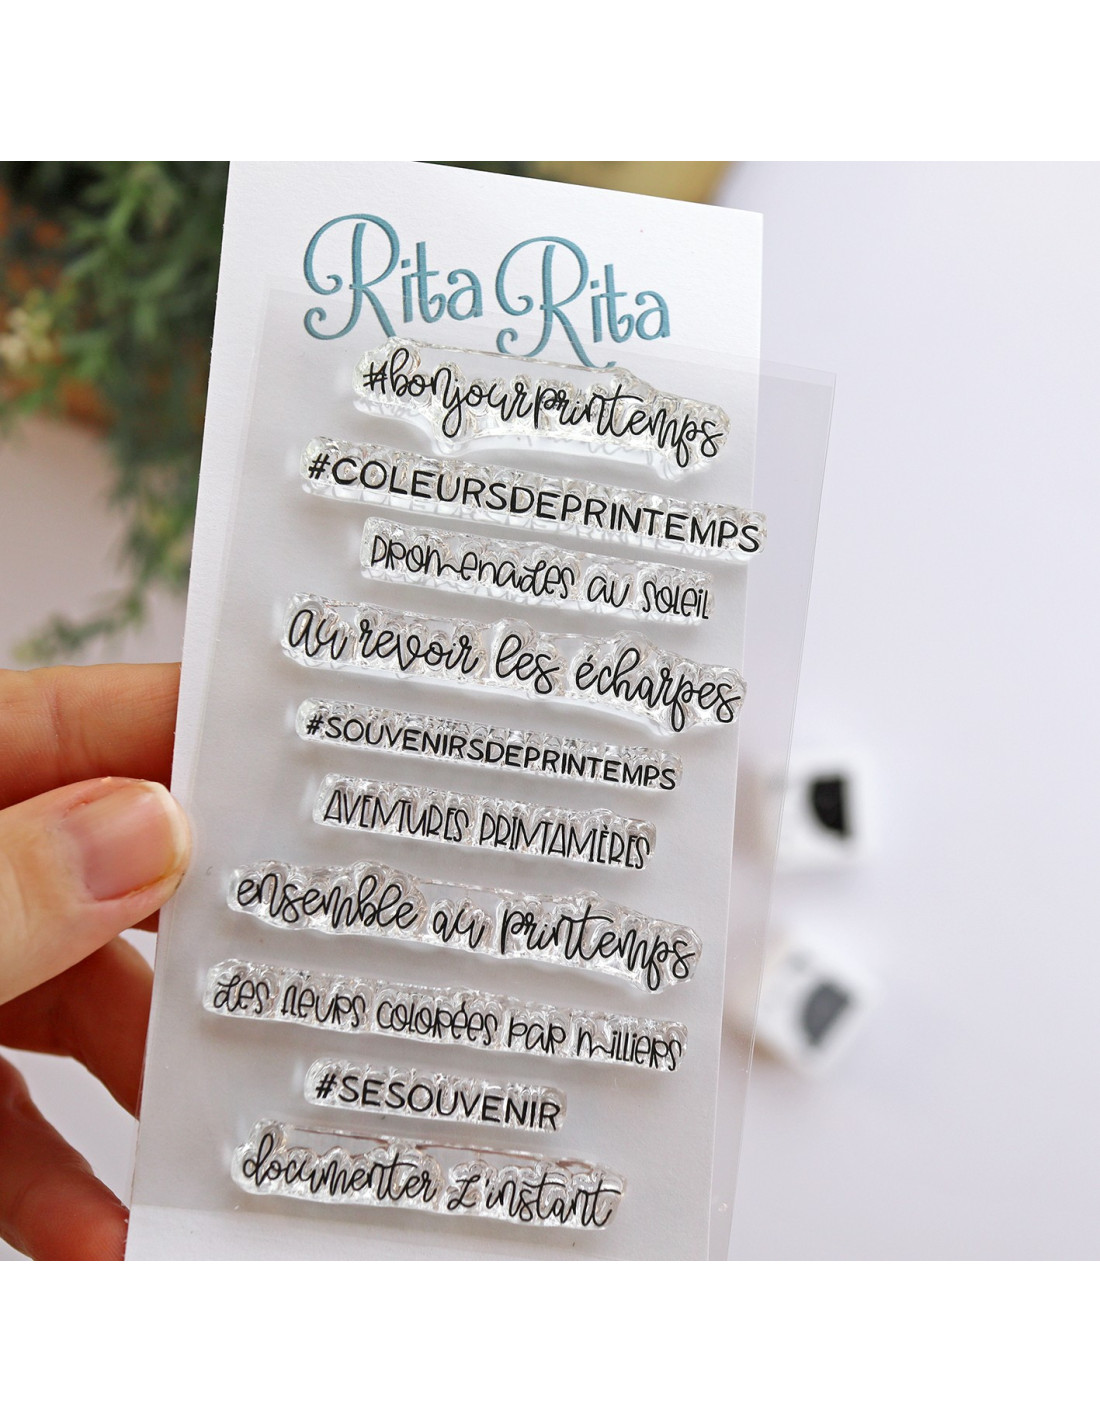 Rita Rita
#bonjourprintemps
#COLEURSDEPRINTEMPS
promenades au soleil
au revoir les écharpes
#SOUVENIRSDEPRINTEMPS
AVENTURES PRINTAMÈRES
ensemble au printemps
Les fleurs colorées par milliers
#SESOUVENIR
documenter l'instant